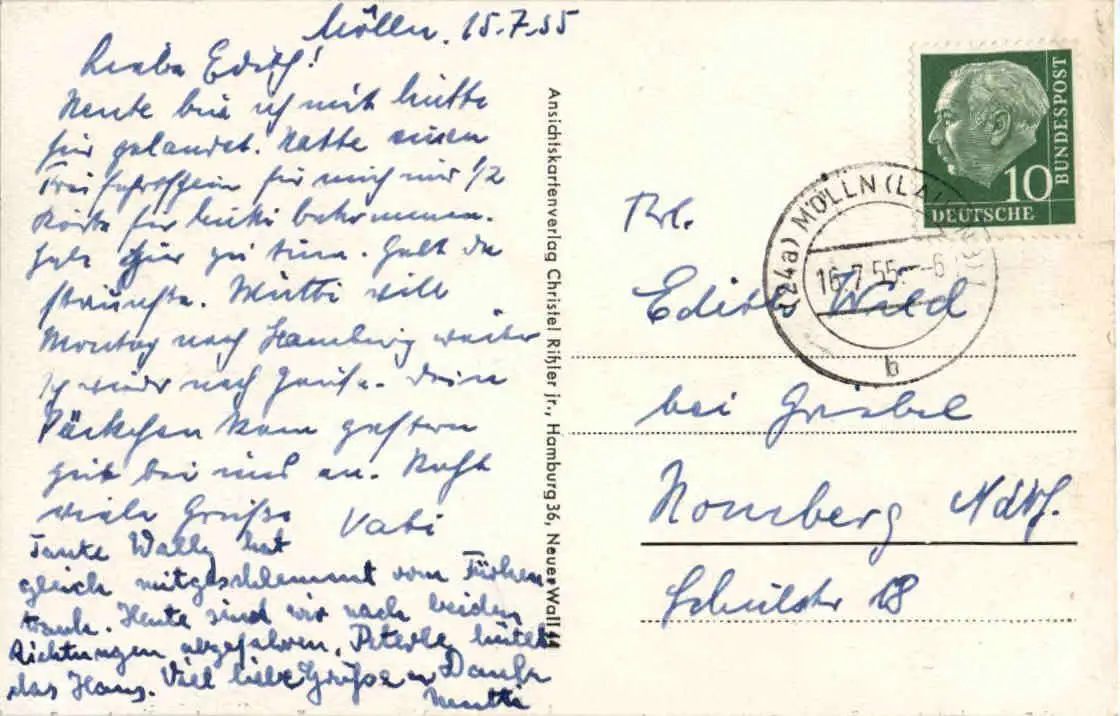 Mölln, 15.7.55
Liebe Edith!
Heute bin ich mit Mutti
hier gelandet. Hatte einen
Freifahrschein für mich und 1/2
Karte für Mutti bekommen.
hier zu tun. Habt
Mutti will
Montag nach Hamburg weiter
ich wieder nach Hause. Deine
Päckchen kam gestern
gut bei uns an. Recht
viele Grüße Vati
Tante Wally hat
gleich mitgeschlemmt vom
Heute sind wir nach beiden
Richtungen abgefahren, Peterle hütet
das Haus. Viel liebe Grüße u Dank
Mutti
Ansichtskartenverlag Christel Rißler jr., Hamburg 36, Neuer Wall 44
DEUTSCHE
BUNDESPOST
10
(24a) MÖLLN (LAUENB)
16.7.55.--6
b
Frl.
Edith Wild
bei Griebel
Homberg Ndrh.
Schulstr 18